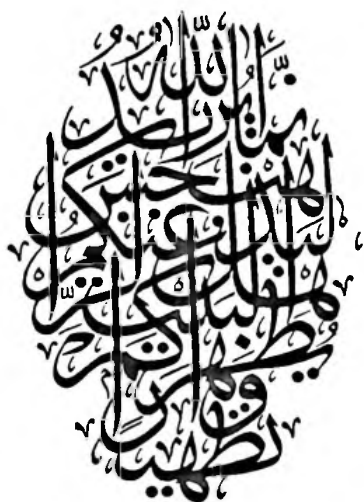 إنما يريد الله
ليذهب عنكم الرجس
أهل البيت
ويطهركم
تطهيرا